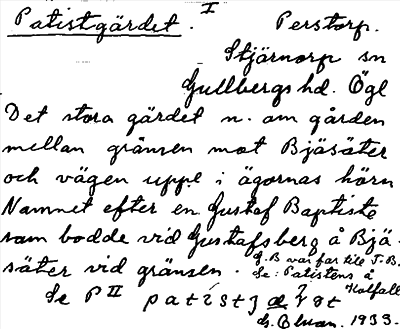 Patistgärdet. I Perstorp.
Stjärnorp sn
Gullbergs hd. Ögl
Det stora gärdet n. om gården
mellan gränsen mot Bjäsäter
och vägen uppe i ägornas hörn
Namnet efter en Gustaf Baptiste
som bodde vid Gustafsberg å Bjä-
säter vid gränsen.
G.B var far till J.B.
Se: Patistens å
Kolfall
Se P II
G. Ekvan. 1933.